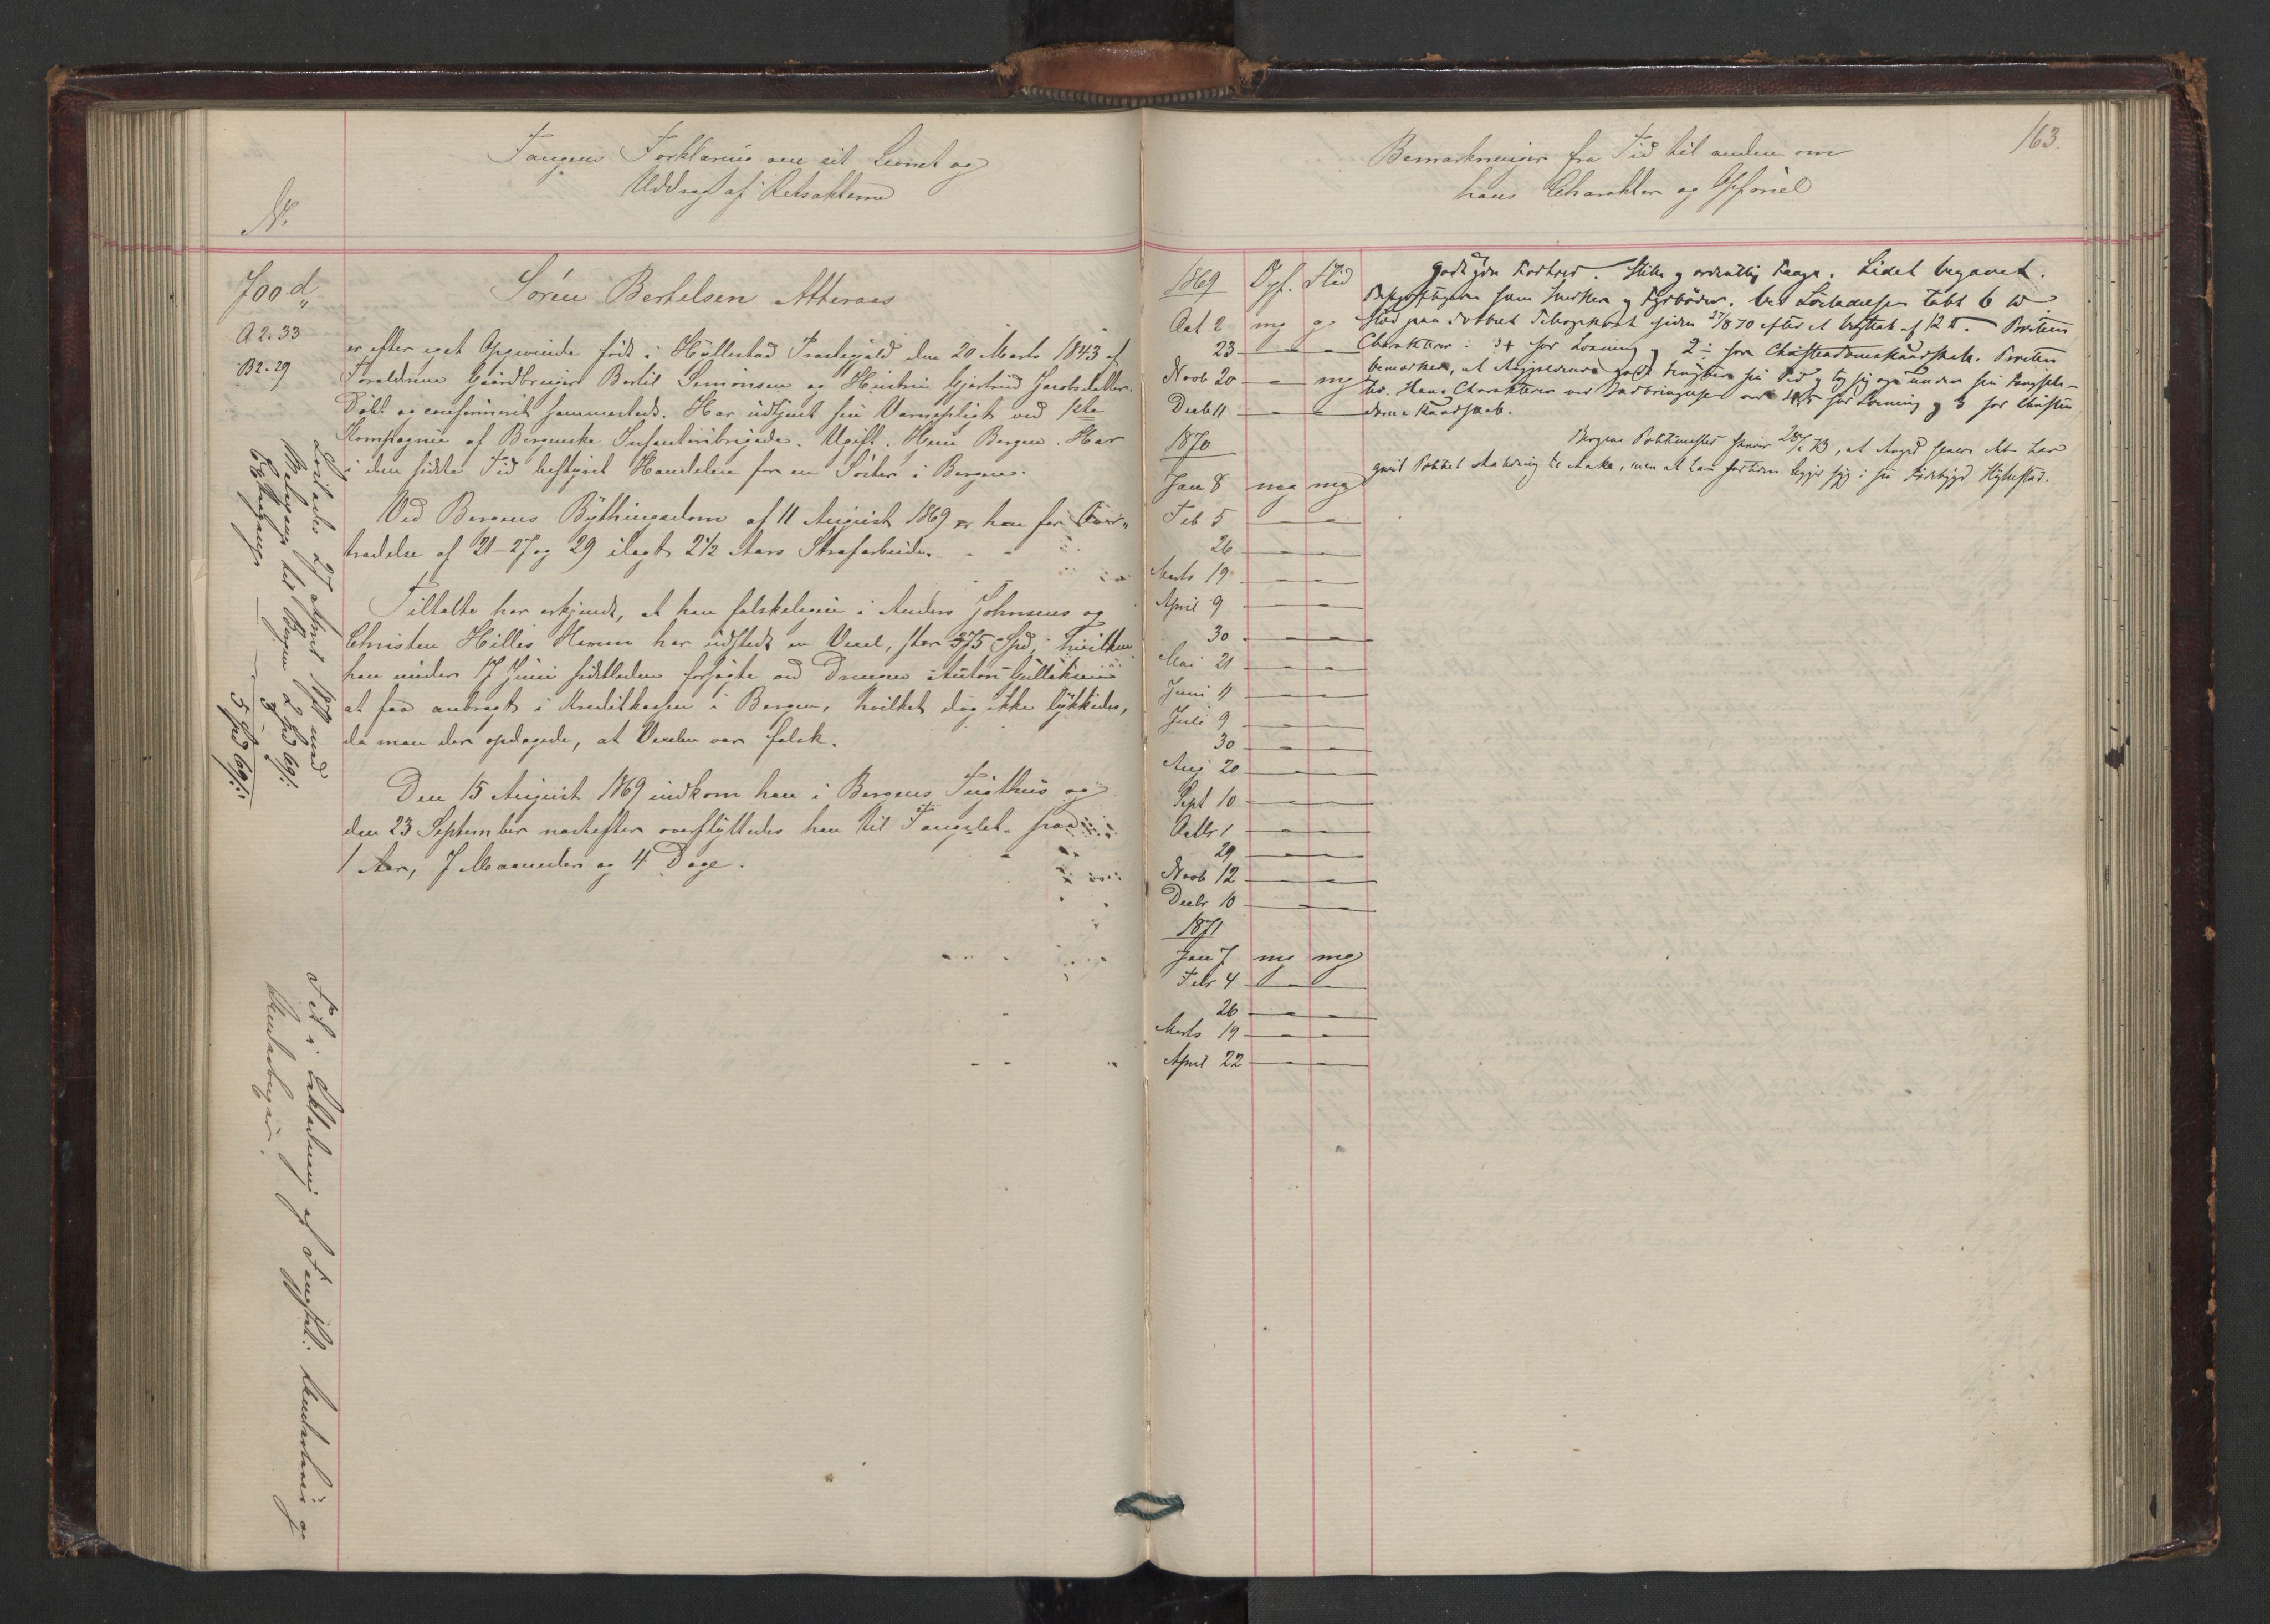 Fangens Forklaring om sit Levnet og
Uddrag af Retsakterne
No.
700 d
A 2. 33
B 2. 29
Sören Bertelsen Atteraas
er efter eget Opgivende född i Hyllestad Præstegjæld den 20 Marts 1843 af
Forældrene Gaardbruger Bertil Simonsen og Hustru Gjertrud Jacobsdatter.
Döbt og confirmeret sammesteds. Har udtjent sin Værnepligt ved 1ste
Kompagnie af Bergenske Infanteribrigade. Ugift. Hjem Bergen. Har
i den sidste Tid bestyret Handelen for en Söster i Bergen.
Ved Bergens Bythingsdom af 11 August 1869 er han for Over-
trædelse af 21-27 og 29 ilagt 2 1/2 Aars Strafarbeide.
Tiltalte har erkjendt, at han falskeligen i Anders Johnsens og
Christen Hilles Navne har udstedt en Vexel, stor 375 Spd, hvilken
han under 17 Juni sidstleden forsøgte ved Drengen Anton Gullaksen
at faa anbragt i Kreditkassen i Bergen, hvilket dog ikke lykkedes,
da man der opdagede, at Vexelen var falsk.
Den 15 August 1869 indkom han i Bergens Tugthus og
den 23 September næstefter overflyttedes han til Fængslet paa
1 Aar, 7 Maaneder og 4 Dage.
Löslades 27 April 1871 med
Reisepenge til Bergen 2 Spd 69 s.
Ekstrapenge 3 "
5 Spd 69 s.
Fik i Beklædning af Fængslet:
Bemærkninger fra Tid til anden om
hans Charakter og Opförsel
163.
1869 Opf. Flid
Oct 2 mg g
23 - -
Novb 20 - mg
Decb 11 - -
1870
Jan 8 mg mg
Feb 5 - -
26 - -
Marts 19 - -
April 9 - -
30 - -
Mai 21 - -
Juni 11 - -
Juli 9 - -
30 - -
Aug 20 - -
Sept 10 - -
Octbr 1 - -
29 - -
Novb 12 - -
Decbr 10 - -
1871
Jan 7 mg mg
Febr 4 - -
26 - -
Marts 19 - -
April 22 - -
godt Forhold. Stille og ordentlig Fange. Lidet begavet.
Beskjæftigelse som Snedker og Fyrböder. Ved Lösladelsen tabt 6 W
Stod paa dobbelt siden 27/8 70 efter et af 12 W. Præsten
Charakter: 3+ for Læsning og 2÷ for Christendomskundskab. Præsten
bemærker, at
Hans Charakterer ved Indbringelsen var for Læsning og 3 for Christen
doms Kundskab.
Bergens Politimester skriver 28/2 73, at
givet Politiet Anledning til Anke, men at han i sin Födebygd Hyllestad.